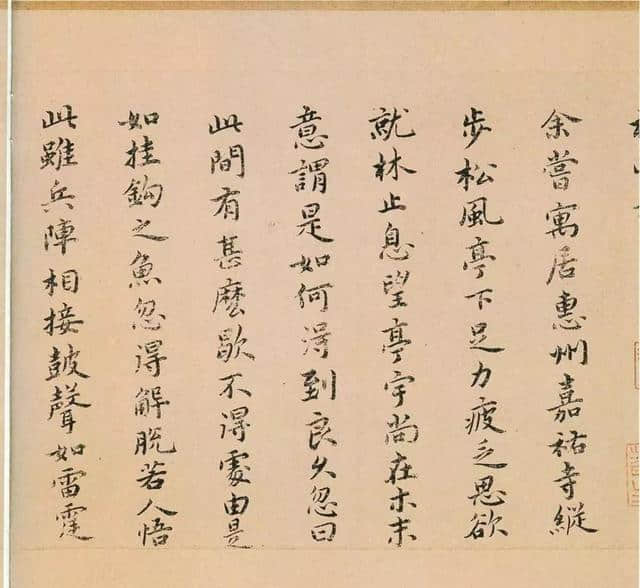 余嘗寓居惠州嘉祐寺縱
步松風亭下足力疲乏思欲
就林止息望亭宇尚在木末
意謂是如何得到良久忽曰
此間有甚麼歇不得處由是
如挂鈎之魚忽得解脫若人悟
此雖兵陣相接鼓聲如雷霆